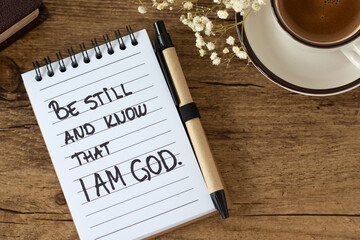 BE STILL
AND KNOW
THAT
I AM GOD.